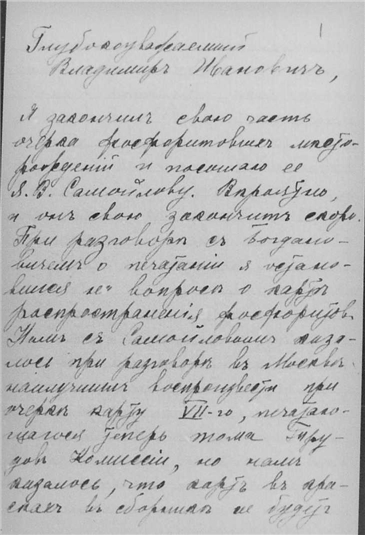 1
Глубокоуважаемый
Владимиръ Ивановичъ,
Я закончилъ свою часть
очерка фосфоритовыхъ место-
рожденій и посылаю ее
Я. В. Самойлову. Вѣроятно,
и онъ свою закончитъ скоро.
При разговорѣ съ Богдано-
вичемъ о печатаніи я остано-
вился на вопросѣ о картѣ
распространенія фосфоритовъ.
Намъ съ Самойловымъ каза-
лось при разговорѣ въ Москвѣ
наилучшимъ воспроизвести при
очеркѣ карту VII-го, печатаю-
щагося теперь тома Тру-
довъ Комиссіи, но намъ
казалось, что карты въ кра-
скахъ въ сборникѣ не будутъ